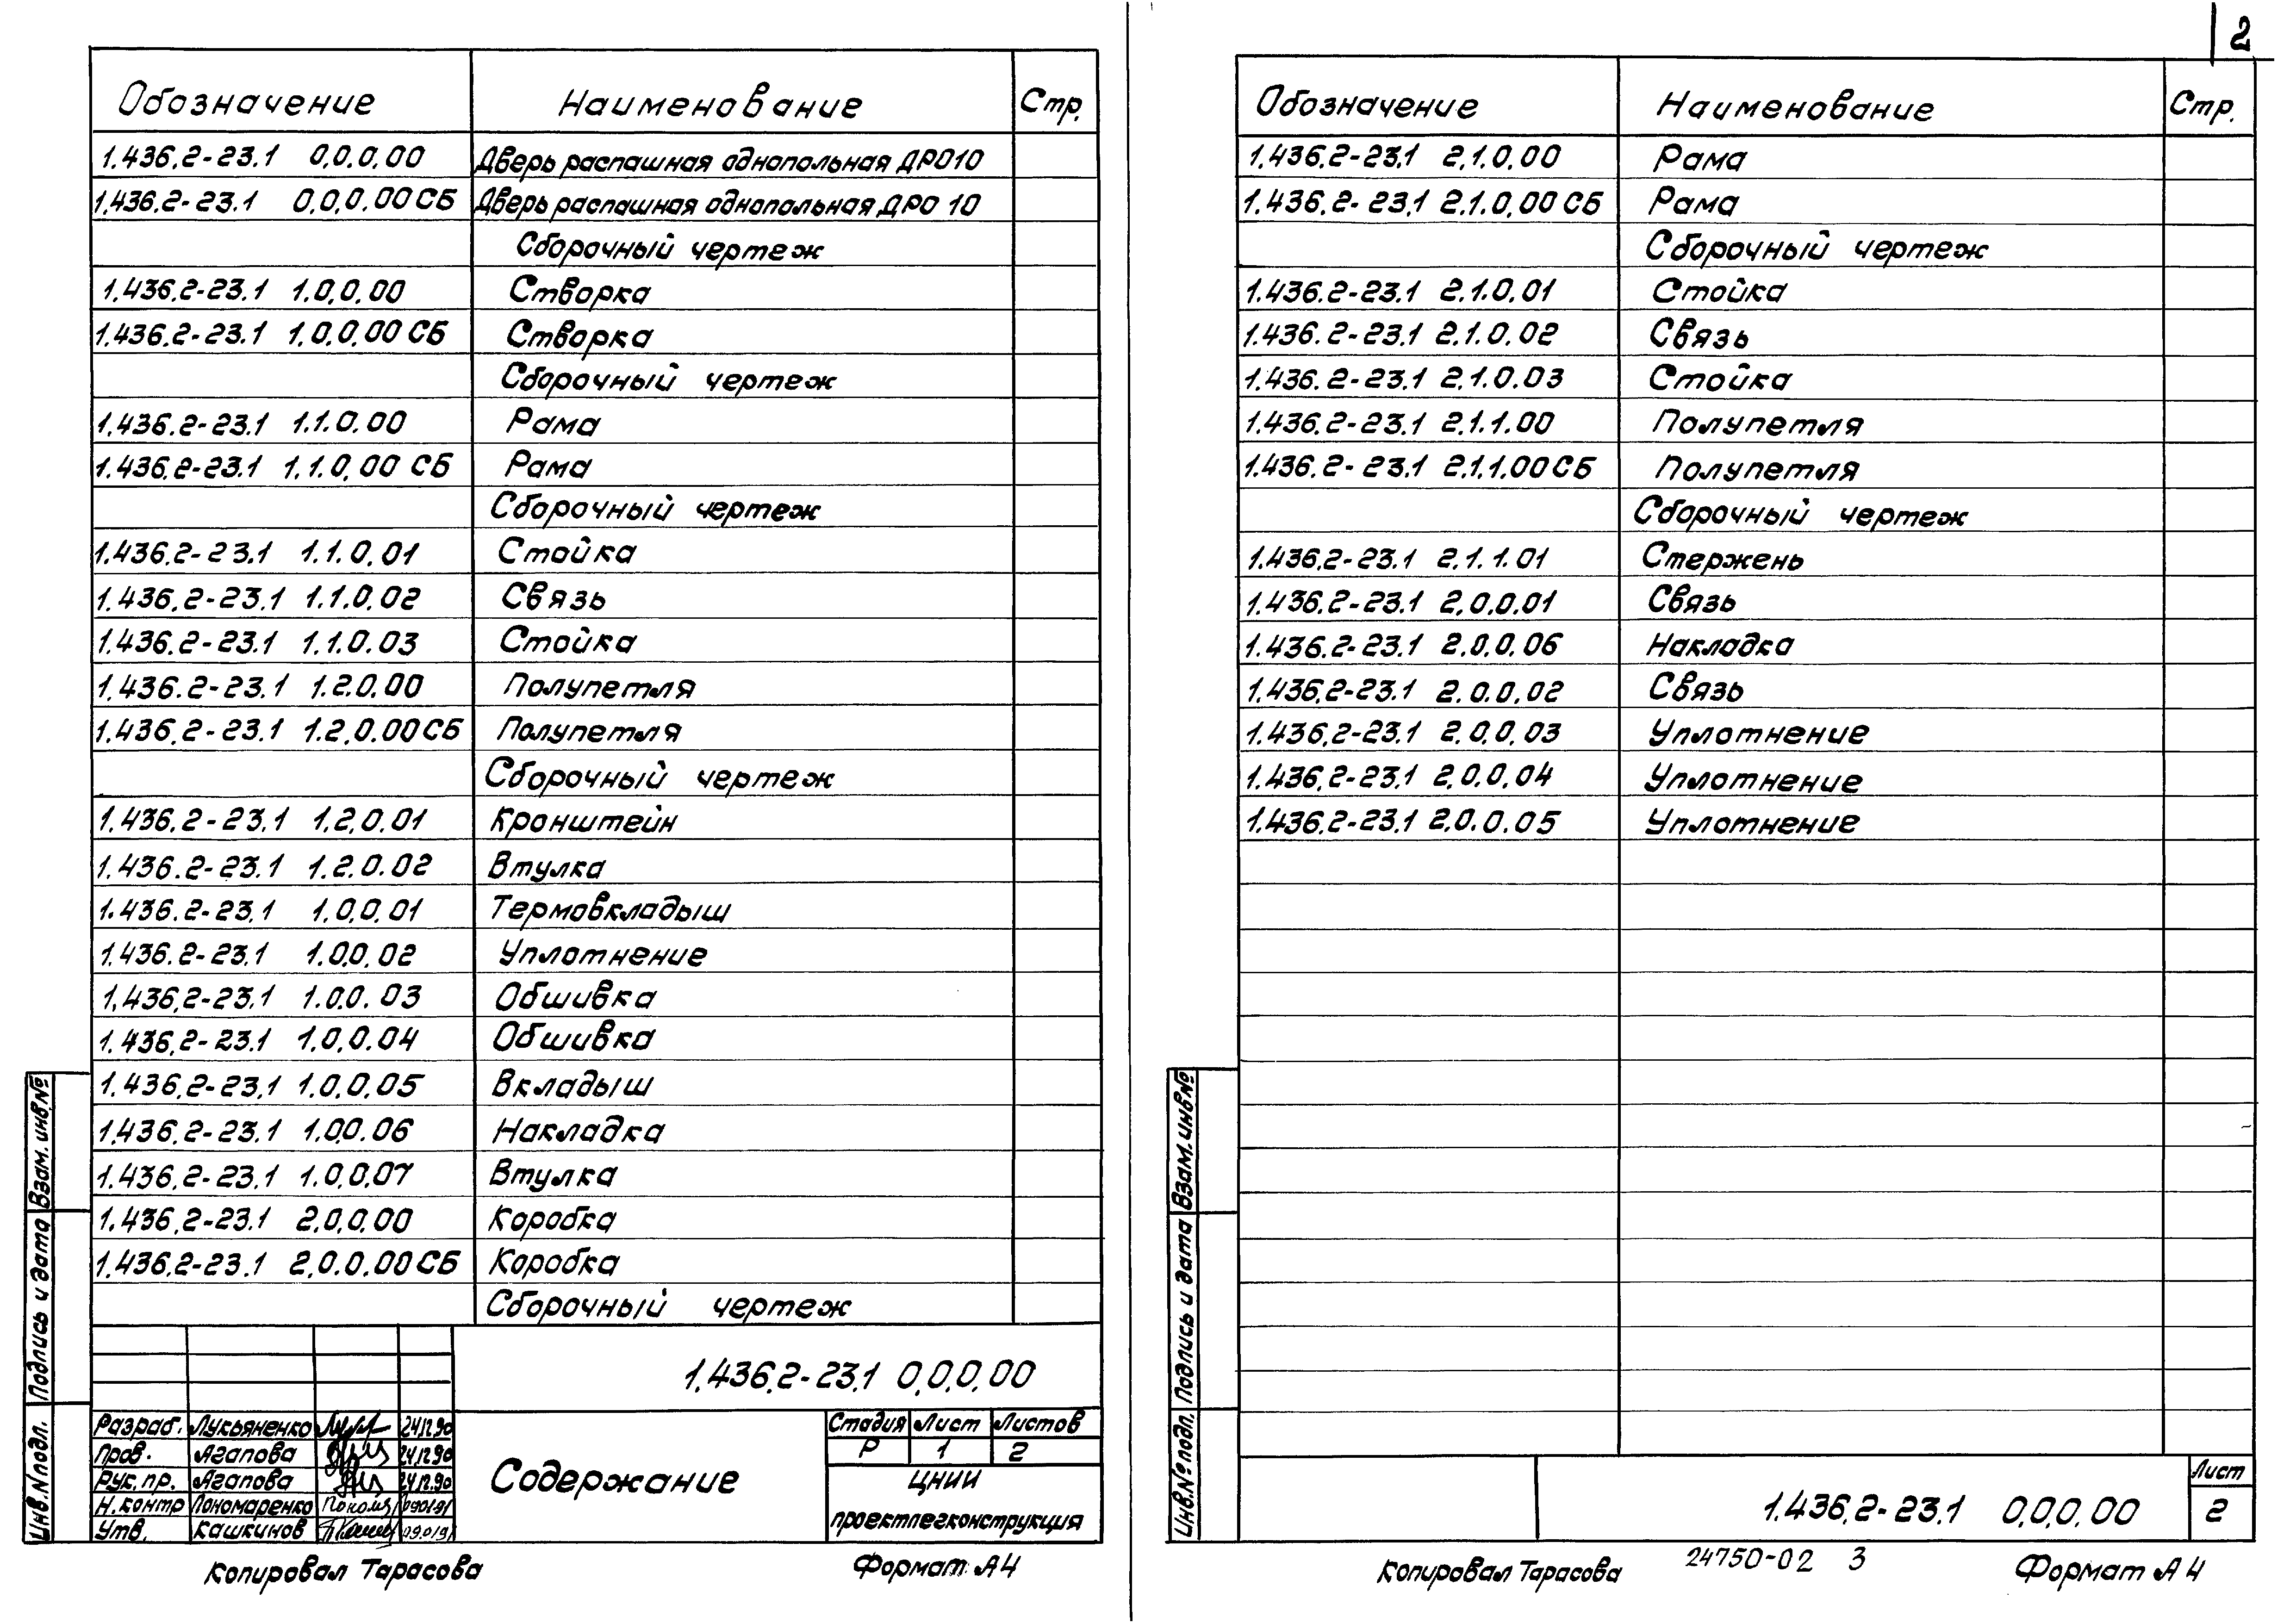 Обозначение Наименование Стр.
1.436.2-23.1 0.0.0.00 Дверь распашная однопольная ДРО10
1.436.2-23.1 0.0.0.00 СБ Дверь распашная однопольная ДРО 10
Сборочный чертеж
1.436.2-23.1 1.0.0.00 Створка
1.436.2-23.1 1.0.0.00 СБ Створка
Сборочный чертеж
1.436.2-23.1 1.1.0.00 Рама
1.436.2-23.1 1.1.0.00 СБ Рама
Сборочный чертеж
1.436.2-23.1 1.1.0.01 Стойка
1.436.2-23.1 1.1.0.02 Связь
1.436.2-23.1 1.1.0.03 Стойка
1.436.2-23.1 1.2.0.00 Полупетля
1.436.2-23.1 1.2.0.00 СБ Полупетля
Сборочный чертеж
1.436.2-23.1 1.2.0.01 Кронштейн
1.436.2-23.1 1.2.0.02 Втулка
1.436.2-23.1 1.0.0.01 Термовкладыш
1.436.2-23.1 1.0.0.02 Уплотнение
1.436.2-23.1 1.0.0.03 Обшивка
1.436.2-23.1 1.0.0.04 Обшивка
1.436.2-23.1 1.0.0.05 Вкладыш
1.436.2-23.1 1.0.0.06 Накладка
1.436.2-23.1 1.0.0.07 Втулка
1.436.2-23.1 2.0.0.00 Коробка
1.436.2-23.1 2.0.0.00 СБ Коробка
Сборочный чертеж
1.436.2-23.1 0.0.0.00
Разраб. Лукьяненко 24.12.90
Пров. Агапова 24.12.90
Рук. пр. Агапова 24.12.90
Н. контр Пономаренко 09.01.91
Утв. Кашкинов 09.01.91
Содержание
Стадия Лист Листов
Р 1 2
ЦНИИ
проектлегконструкция
Инв. N подл. Подпись и дата Взам. инв. №
Копировал Тарасова Формат А4
2
Обозначение Наименование Стр.
1.436.2-23.1 2.1.0.00 Рама
1.436.2-23.1 2.1.0.00 СБ Рама
Сборочный чертеж
1.436.2-23.1 2.1.0.01 Стойка
1.436.2-23.1 2.1.0.02 Связь
1.436.2-23.1 2.1.0.03 Стойка
1.436.2-23.1 2.1.1.00 Полупетля
1.436.2-23.1 2.1.1.00 СБ Полупетля
Сборочный чертеж
1.436.2-23.1 2.1.1.01 Стержень
1.436.2-23.1 2.0.0.01 Связь
1.436.2-23.1 2.0.0.06 Накладка
1.436.2-23.1 2.0.0.02 Связь
1.436.2-23.1 2.0.0.03 Уплотнение
1.436.2-23.1 2.0.0.04 Уплотнение
1.436.2-23.1 2.0.0.05 Уплотнение
Инв. № подл. Подпись и дата Взам. инв. №
1.436.2-23.1 0.0.0.00
Лист
2
Копировал Тарасова 24750-02 3 Формат А4